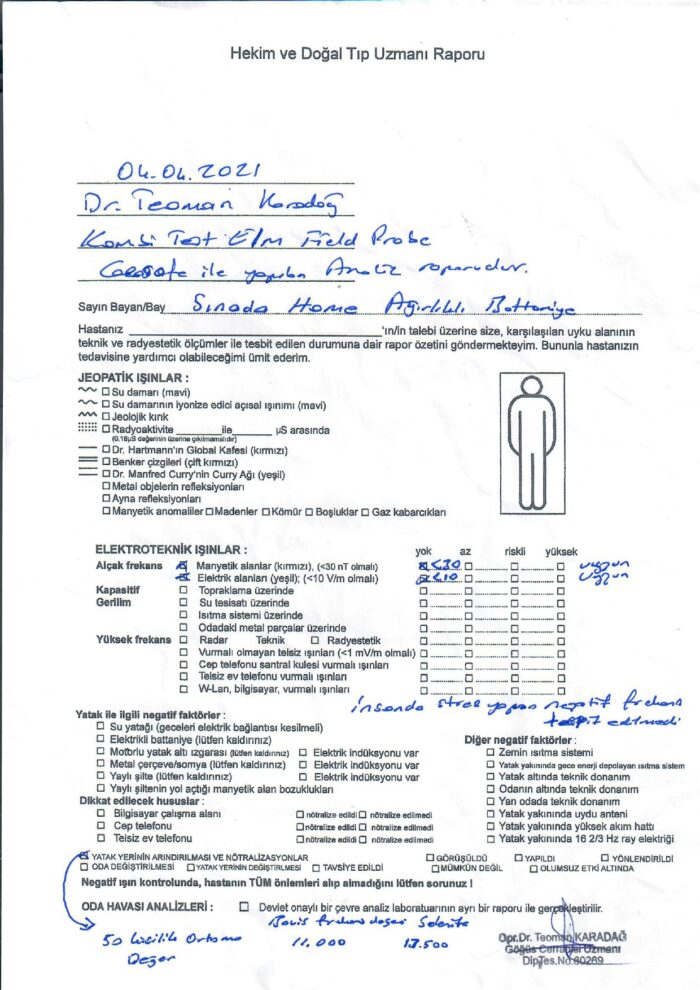 Hekim ve Doğal Tıp Uzmanı Raporu
04.04.2021
Dr. Teoman Karadağ
Kombi Test E/m Field Probe
ile yapılan Analiz raporudur.
Sayın Bayan/Bay Sınada Home Ağırlıklı Battaniye
Hastanız 'ın/in talebi üzerine size, karşılaşılan uyku alanının
teknik ve radyestetik ölçümler ile tesbit edilen durumuna dair rapor özetini göndermekteyim. Bununla hastanızın
tedavisine yardımcı olabileceğimi ümit ederim.
JEOPATİK IŞINLAR :
Su damarı (mavi)
Su damarının iyonize edici açısal ışınımı (mavi)
Jeolojik kırık
Radyoaktivite ile µS arasında
(0,18µS değerinin üzerine çıkılmamalıdır)
Dr. Hartmann'ın Global Kafesi (kırmızı)
Benker çizgileri (çift kırmızı)
Dr. Manfred Curry'nin Curry Ağı (yeşil)
Metal objelerin refleksiyonları
Ayna refleksiyonları
Manyetik anomaliler Madenler Kömür Boşluklar Gaz kabarcıkları
ELEKTROTEKNİK IŞINLAR : yok az riskli yüksek
Alçak frekans Manyetik alanlar (kırmızı), (<30 nT olmalı) <30 uygun
Elektrik alanları (yeşil); (<10 V/m olmalı) <10 uygun
Kapasitif Topraklama üzerinde
Gerilim Su tesisatı üzerinde
Isıtma sistemi üzerinde
Odadaki metal parçalar üzerinde
Yüksek frekans Radar Teknik Radyestetik
Vurmalı olmayan telsiz ışınları (<1 mV/m olmalı)
Cep telefonu santral kulesi vurmalı ışınları
Telsiz ev telefonu vurmalı ışınları
W-Lan, bilgisayar, vurmalı ışınları
insanda stres yapan negatif frekans
tespit edilmedi
Yatak ile ilgili negatif faktörler :
Su yatağı (geceleri elektrik bağlantısı kesilmeli)
Elektrikli battaniye (lütfen kaldırınız)
Motorlu yatak altı ızgarası (lütfen kaldırınız) Elektrik indüksyonu var
Metal çerçeve/somya (lütfen kaldırınız) Elektrik indüksyonu var
Yaylı şilte (lütfen kaldırınız) Elektrik indüksyonu var
Yaylı şiltenin yol açtığı manyetik alan bozuklukları
Diğer negatif faktörler :
Zemin ısıtma sistemi
Yatak yakınında gece enerji depolayan ısıtma sistem
Yatak altında teknik donanım
Odanın altında teknik donanım
Yan odada teknik donanım
Yatak yakınında uydu anteni
Yatak yakınında yüksek akım hattı
Yatak yakınında 16 2/3 Hz ray elektriği
Dikkat edilecek hususlar :
Bilgisayar çalışma alanı nötralize edildi nötralize edilmedi
Cep telefonu nötralize edildi nötralize edilmedi
Telsiz ev telefonu nötralize edildi nötralize edilmedi
YATAK YERİNİN ARINDIRILMASI VE NÖTRALİZASYONLAR GÖRÜŞÜLDÜ YAPILDI YÖNLENDİRİLDİ
ODA DEĞİŞTİRİLMESİ YATAK YERİNİN DEĞİŞTİRİLMESİ TAVSİYE EDİLDİ MÜMKÜN DEĞİL OLUMSUZ ETKİ ALTINDA
Negatif ışın kontrolunda, hastanın TÜM önlemleri alıp almadığını lütfen sorunuz !
ODA HAVASI ANALİZLERİ : Devlet onaylı bir çevre analiz laboratuarının ayrı bir raporu ile gerçekleştirilir.
Bovis frekans değeri
50 kişilik Ortama 11.000 17.500
Değer
Opr.Dr. Teoman KARADAĞ
Göğüs Cerrahisi Uzmanı
Dip.Tes.No.60269